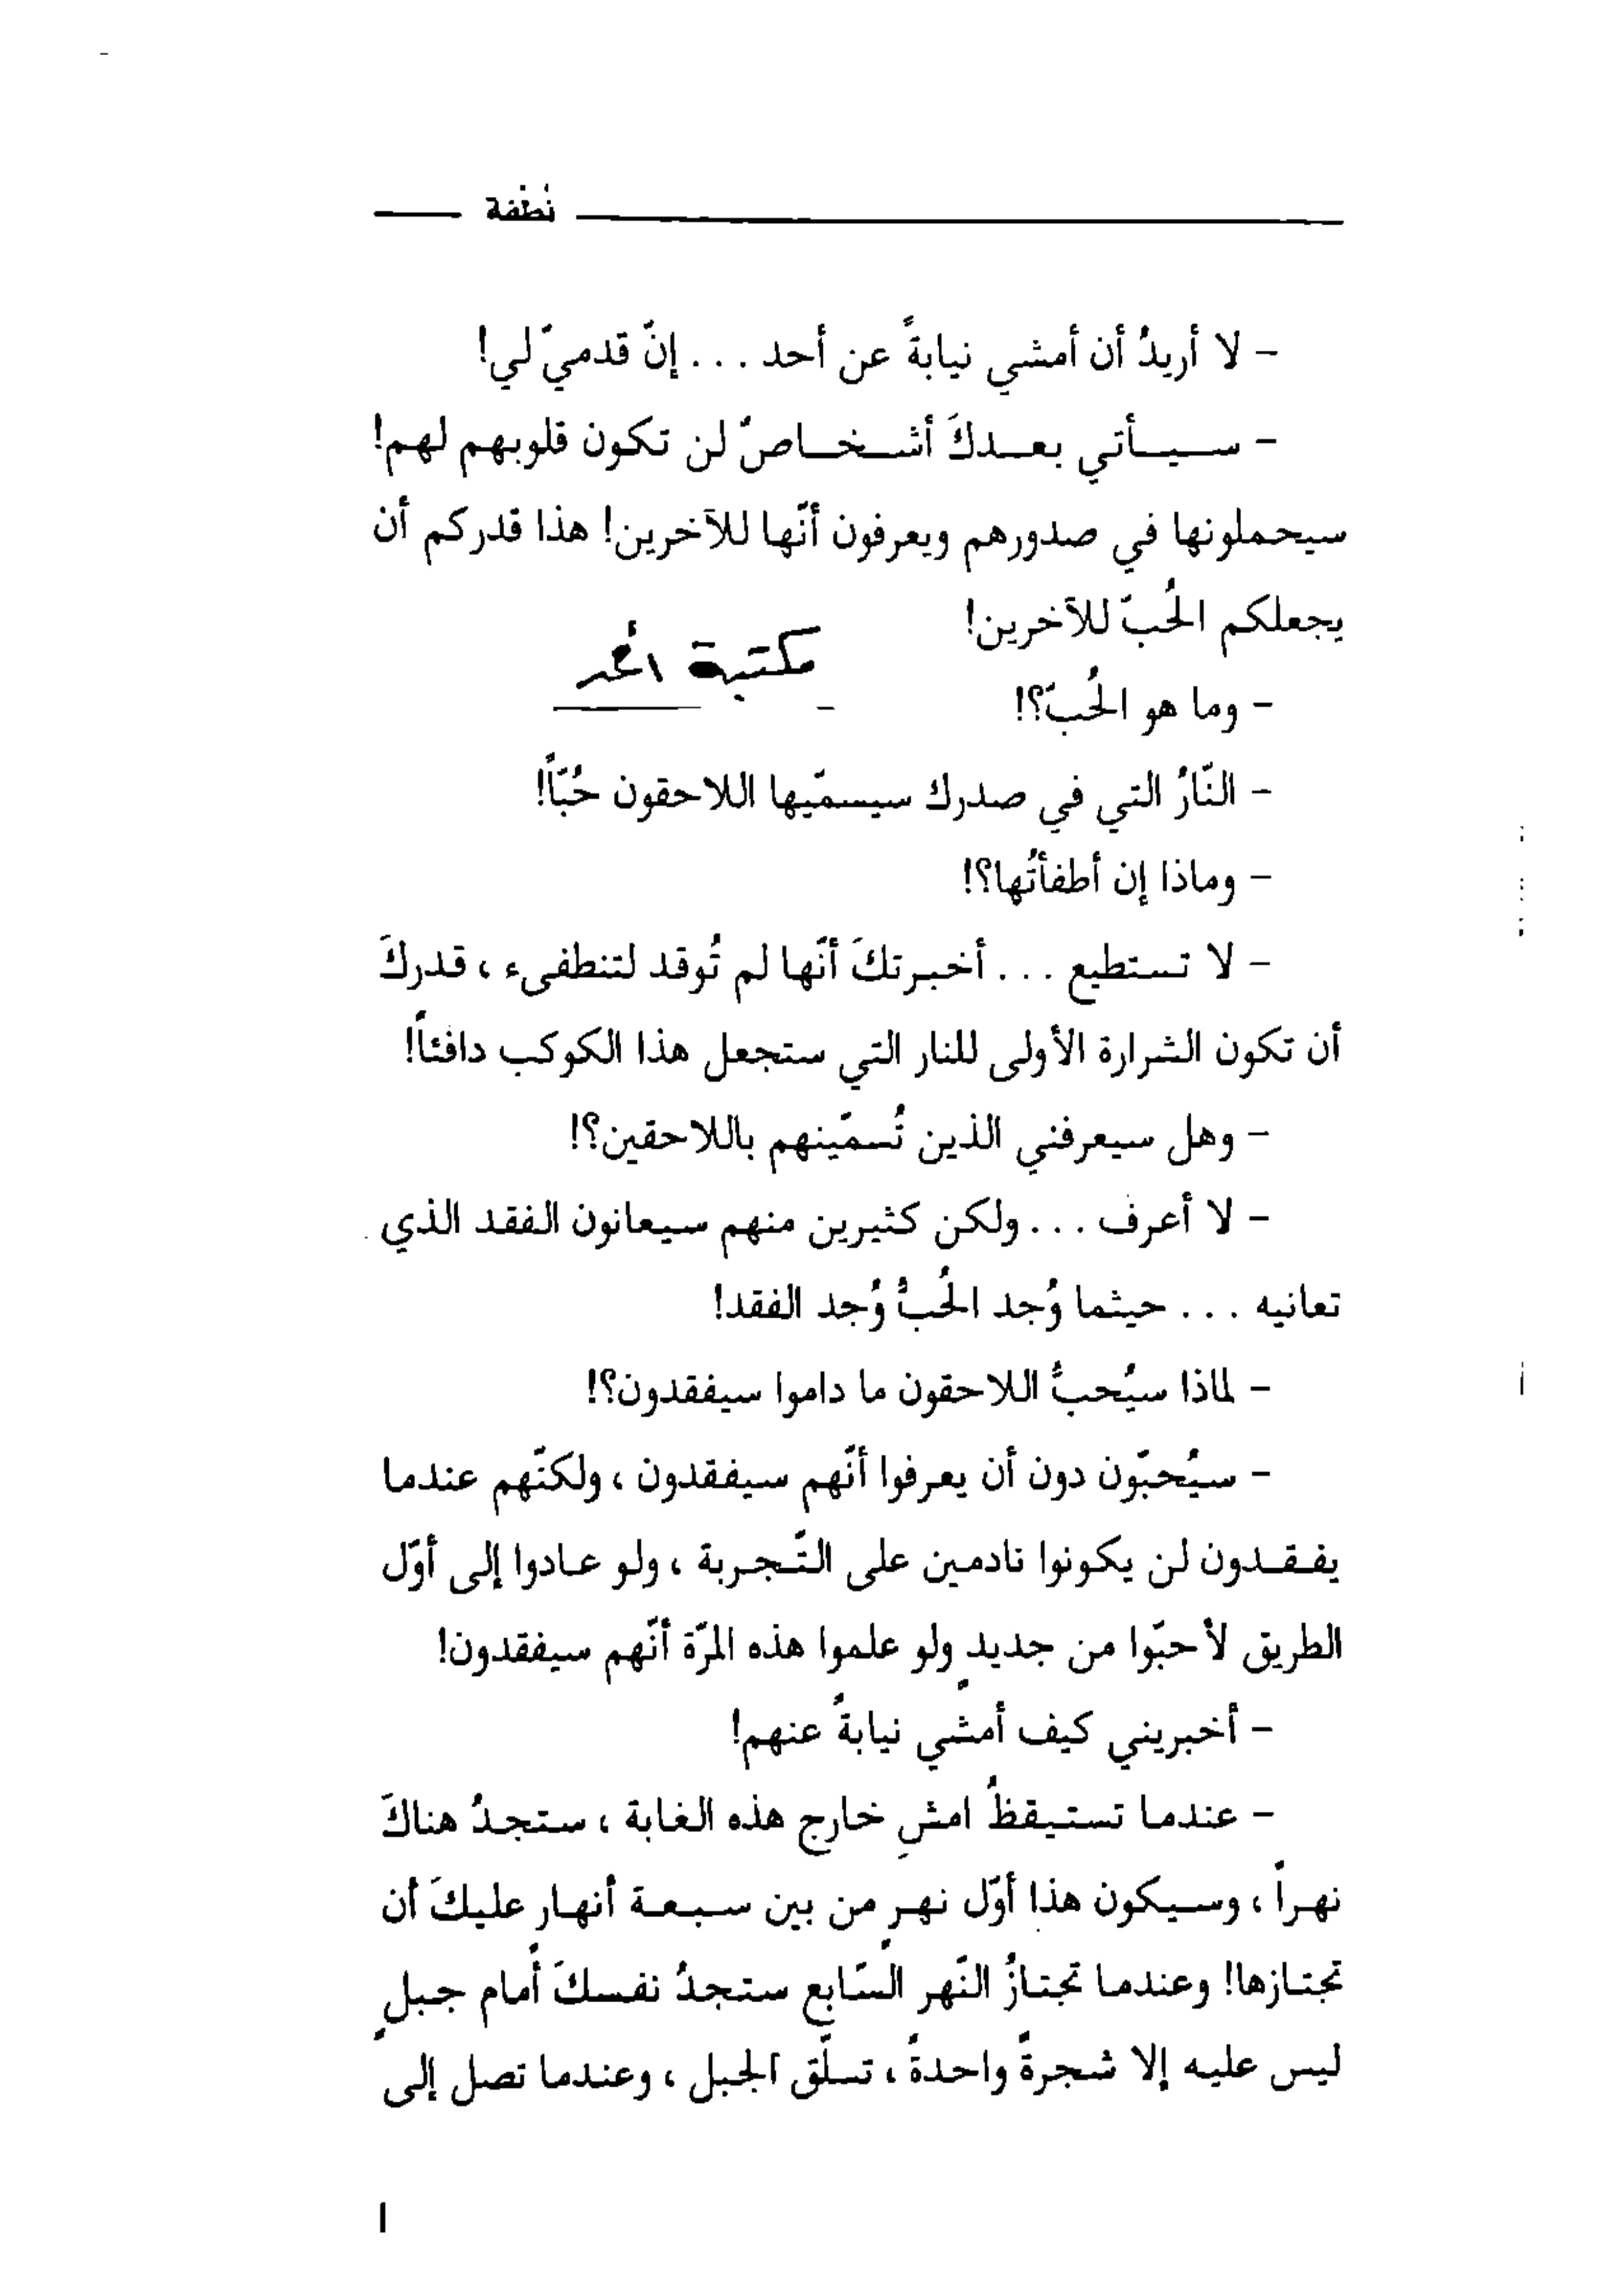 نُطْفة
- لا أريدُ أن أمشي نيابةً عن أحد . . . إنّ قدميّ لي!
- سيأتي بعدكَ أشخاصٌ لن تكون قلوبهم لهم!
سيحملونها في صدورهم ويعرفون أنّها للآخرين! هذا قدركم أن
يجعلكم الحُبّ للآخرين!
مكتبة
- وما هو الحُبّ؟!
- النّارُ التي في صدرك سيسمّيها اللاحقون حُبّاً!
- وماذا إن أطفأتُها؟!
- لا تستطيع . . . أخبرتكَ أنّها لم تُوقد لتنطفىء ، قدركَ
أن تكون الشرارة الأولى للنار التي ستجعل هذا الكوكب دافئاً!
- وهل سيعرفني الذين تُسمّينهم باللاحقين؟!
- لا أعرف . . . ولكن كثيرين منهم سيعانون الفقد الذي
تعانيه . . . حيثما وُجد الحُبُّ وُجد الفقد!
- لماذا سيُحبُّ اللاحقون ما داموا سيفقدون؟!
- سيُحبّون دون أن يعرفوا أنّهم سيفقدون ، ولكنّهم عندما
يفقدون لن يكونوا نادمين على التّجربة ، ولو عادوا إلى أوّل
الطريق لأحبّوا من جديدٍ ولو علموا هذه المرّة أنّهم سيفقدون!
- أخبريني كيف أمشي نيابةً عنهم!
- عندما تستيقظُ امشِ خارج هذه الغابة ، ستجدُ هناكَ
نهراً ، وسيكون هذا أوّل نهرٍ من بين سبعة أنهار عليكَ أن
تجتازها! وعندما تجتازُ النّهر السّابع ستجدُ نفسكَ أمام جبلٍ
ليس عليه إلا شجرةً واحدةً ، تسلّق الجبل ، وعندما تصل إلى